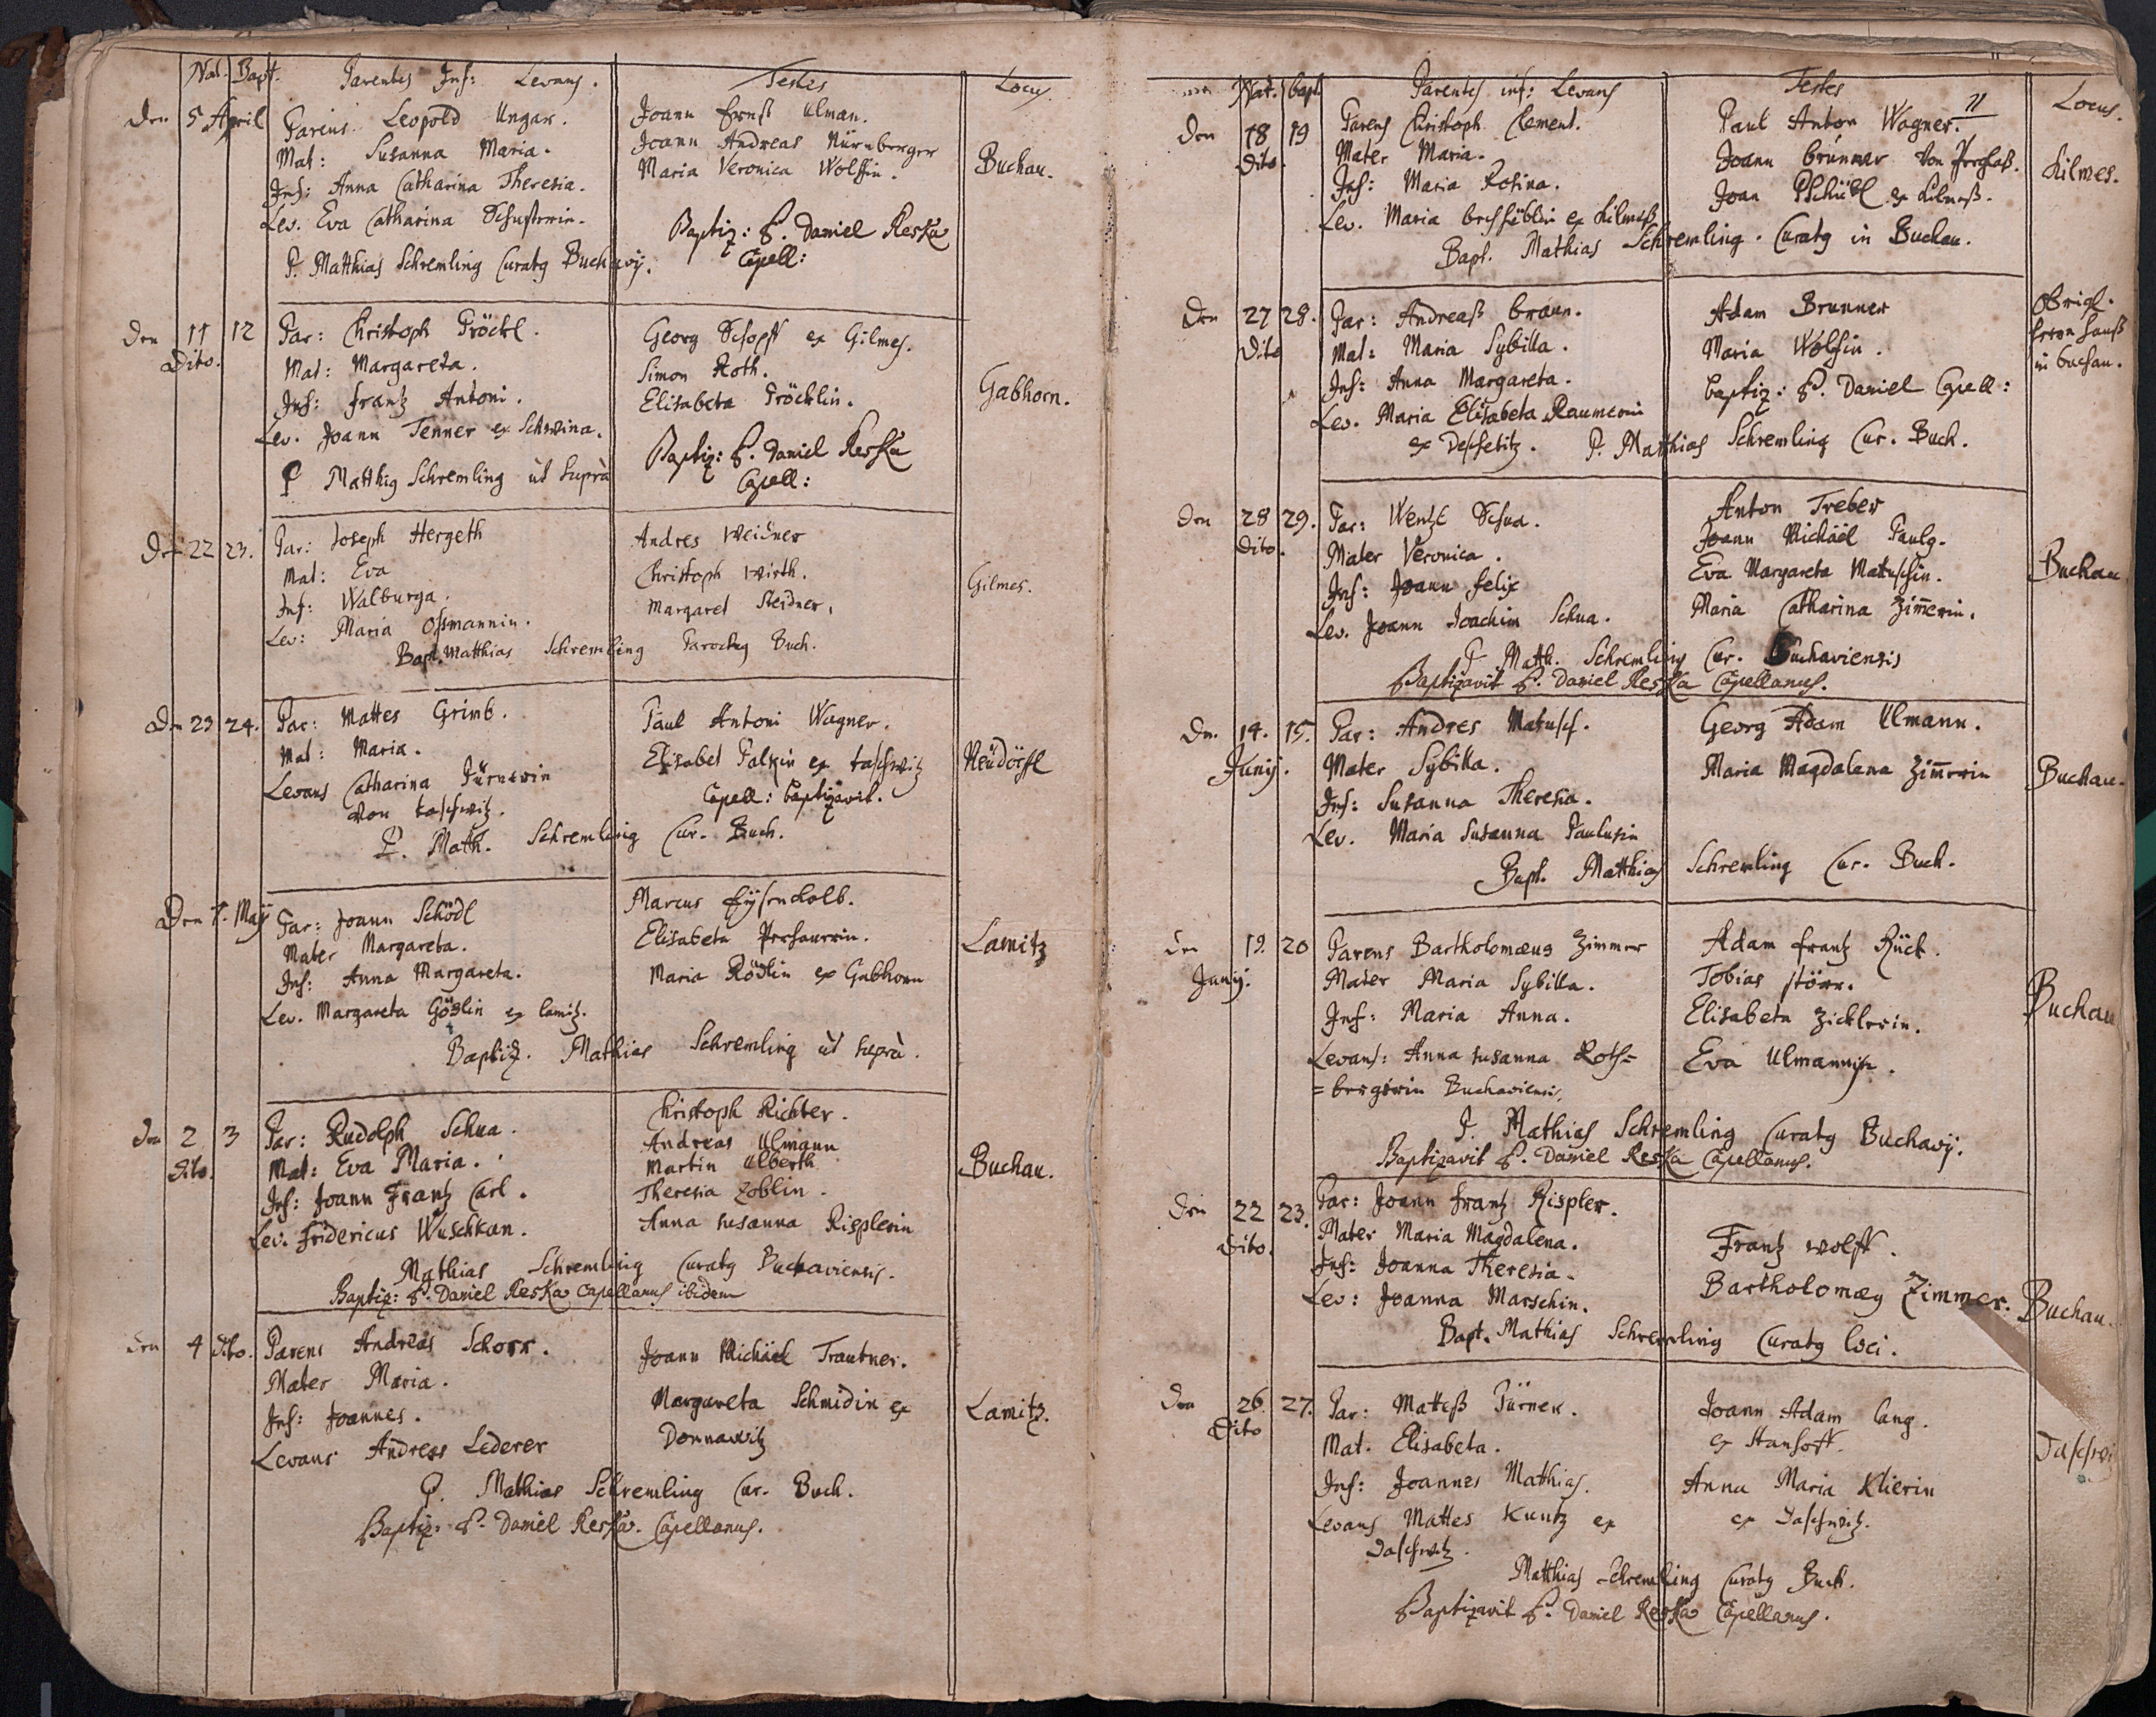 Nat. Bapt. Parentes Inf: Levans. Testes Locus
Den 5 April Parens Leopold Ungar. Joann Ernst Ulman.
Mat: Susanna Maria. Joann Andreas Nürnberger
Inf: Anna Catharina Theresia. Maria Veronica Wolffin. Buchau.
Lev. Eva Catharina Schusterin.
Baptiz: P. Daniel Reska
P. Matthias Schremling Curatus Buchavij. Capell:
Den 11 12 Par: Christoph Pröckl. Georg Schopff ex Gilmes.
Dito. Mat: Margareta. Simon Roth.
Inf: Frantz Antoni. Elisabeta Pröcklin. Gabhorn.
Lev. Joann Tenner ex Schwina.
Baptiz: P. Daniel Reska
P Matthias Schremling ut suprà Capell:
Den 22 23. Par: Joseph Hergeth Andres Weidner
Mat: Eva Christoph Wirth.
Inf: Walburga. Margaret Neidner. Gilmes.
Lev: Maria Ossmannin.
Bapt. Matthias Schremling Parochus Buch.
Den 23 24. Par: Mattes Grimb. Paul Antoni Wagner.
Mat: Maria. Elisabet Palzin ex taschwitz Neüdörffl
Levans Catharina Pürnerin
von taschwitz. Capell: baptizavit.
P. Math. Schremling Cur. Buch.
Den 1. Maij Par: Joann Schödl Marcus Eysenkolb.
Mater Margareta. Elisabeta
Inf: Anna Margareta. Maria Rödlin ex Gabhorn Lamitz
Lev. Margareta Göslin ex lamitz.
Baptiz. Mathias Schremling ut suprà.
Den 2 3 Par: Rudolph Schua. Christoph Richter.
Dito. Mat: Eva Maria. Andreas Ulmann
Martin Alberth Buchau.
Inf: Joann Frantz Carl. Theresia Zoblin.
Lev. Fridericus Wuschkan. Anna Susanna Risplerin
Mathias Schremling Curatus Buchaviensis.
Baptiz: P. Daniel Reska Capellanus ibidem
Den 4 dito. Parens Andreas Schorr. Joann Michäel Trautner.
Mater Maria. Margareta Schmidin ex
Inf: Joannes. Donnawitz Lamitz.
Levans Andreas Lederer
P. Mathias Schremling Cur. Buch.
Baptiz: P. Daniel Reska. Capellanus.
11
Nat. bapt. Parentes inf: Levans Testes Locus.
Den 18 19 Parens Christoph Clement. Paul Anton Wagner.
Dito. Mater Maria. Joann Brunner von
Inf: Maria Rosina. Joan ex Kilmeß. Kilmes.
Lev. Maria ex Kilmeß
Bapt. Mathias Schremling. Curatus in Buchau.
Den 27 28. Par: Andreaß braun. Adam Brunner
Dito Mat: Maria Sybilla. Maria Wolfin. in buchau.
Inf: Anna Margareta. baptiz: P. Daniel Capell:
Lev. Maria Elisabeta Raumerin
ex P. Matthias Schremling Cur. Buch.
Den 28 29. Par: Wentzl Schua. Anton Treber
Dito. Mater Veronica. Joann Michäel Paulus.
Inf: Joann Felix Eva Margareta Matuschin. Buchau
Lev. Joann Joachim Schua. Maria Catharina Zim̄erin.
P Matth. Schremling Cur. Buchaviensis
Baptizavit P. Daniel Reska Capellanus.
Den 14. 15. Par: Andres Matusch. Georg Adam Ulmann.
Junij. Mater Sybilla. Maria Magdalena Zim̄erin Buchau.
Inf: Susanna Theresia.
Lev. Maria Susanna Paulusin
Bapt. Matthias Schremling Cur. Buch.
Den 19. 20 Parens Bartholomæus Zimmer Adam Frantz Rück.
Junij. Mater Maria Sybilla. Tobias Störr.
Inf: Maria Anna. Elisabeta Zicklerin. Buchau
Levans: Anna Susanna Roth= Eva Ulmannin.
=bergerin Buchaviensis.
P. Mathias Schremling Curatus Buchavij.
Baptizavit P. Daniel Reska Capellanus.
Den 22 23. Par: Joann Frantz Rispler.
Dito. Mater Maria Magdalena. Frantz Wolff.
Inf: Joanna Theresia. Bartholomæus Zimmer. Buchau.
Lev: Joanna Marschin.
Bapt. Mathias Schremling Curatus loci.
Den 26 27. Par: Matteß Pürner. Joann Adam lang.
Dito Mat. Elisabeta. ex
Inf: Joannes Matthias. Anna Maria Klierin
Levans Mattes Kuntz ex ex Daschwitz.
Daschwitz.
Matthias Schremling Curatus Buch.
Baptizavit P. Daniel Reska Capellanus.